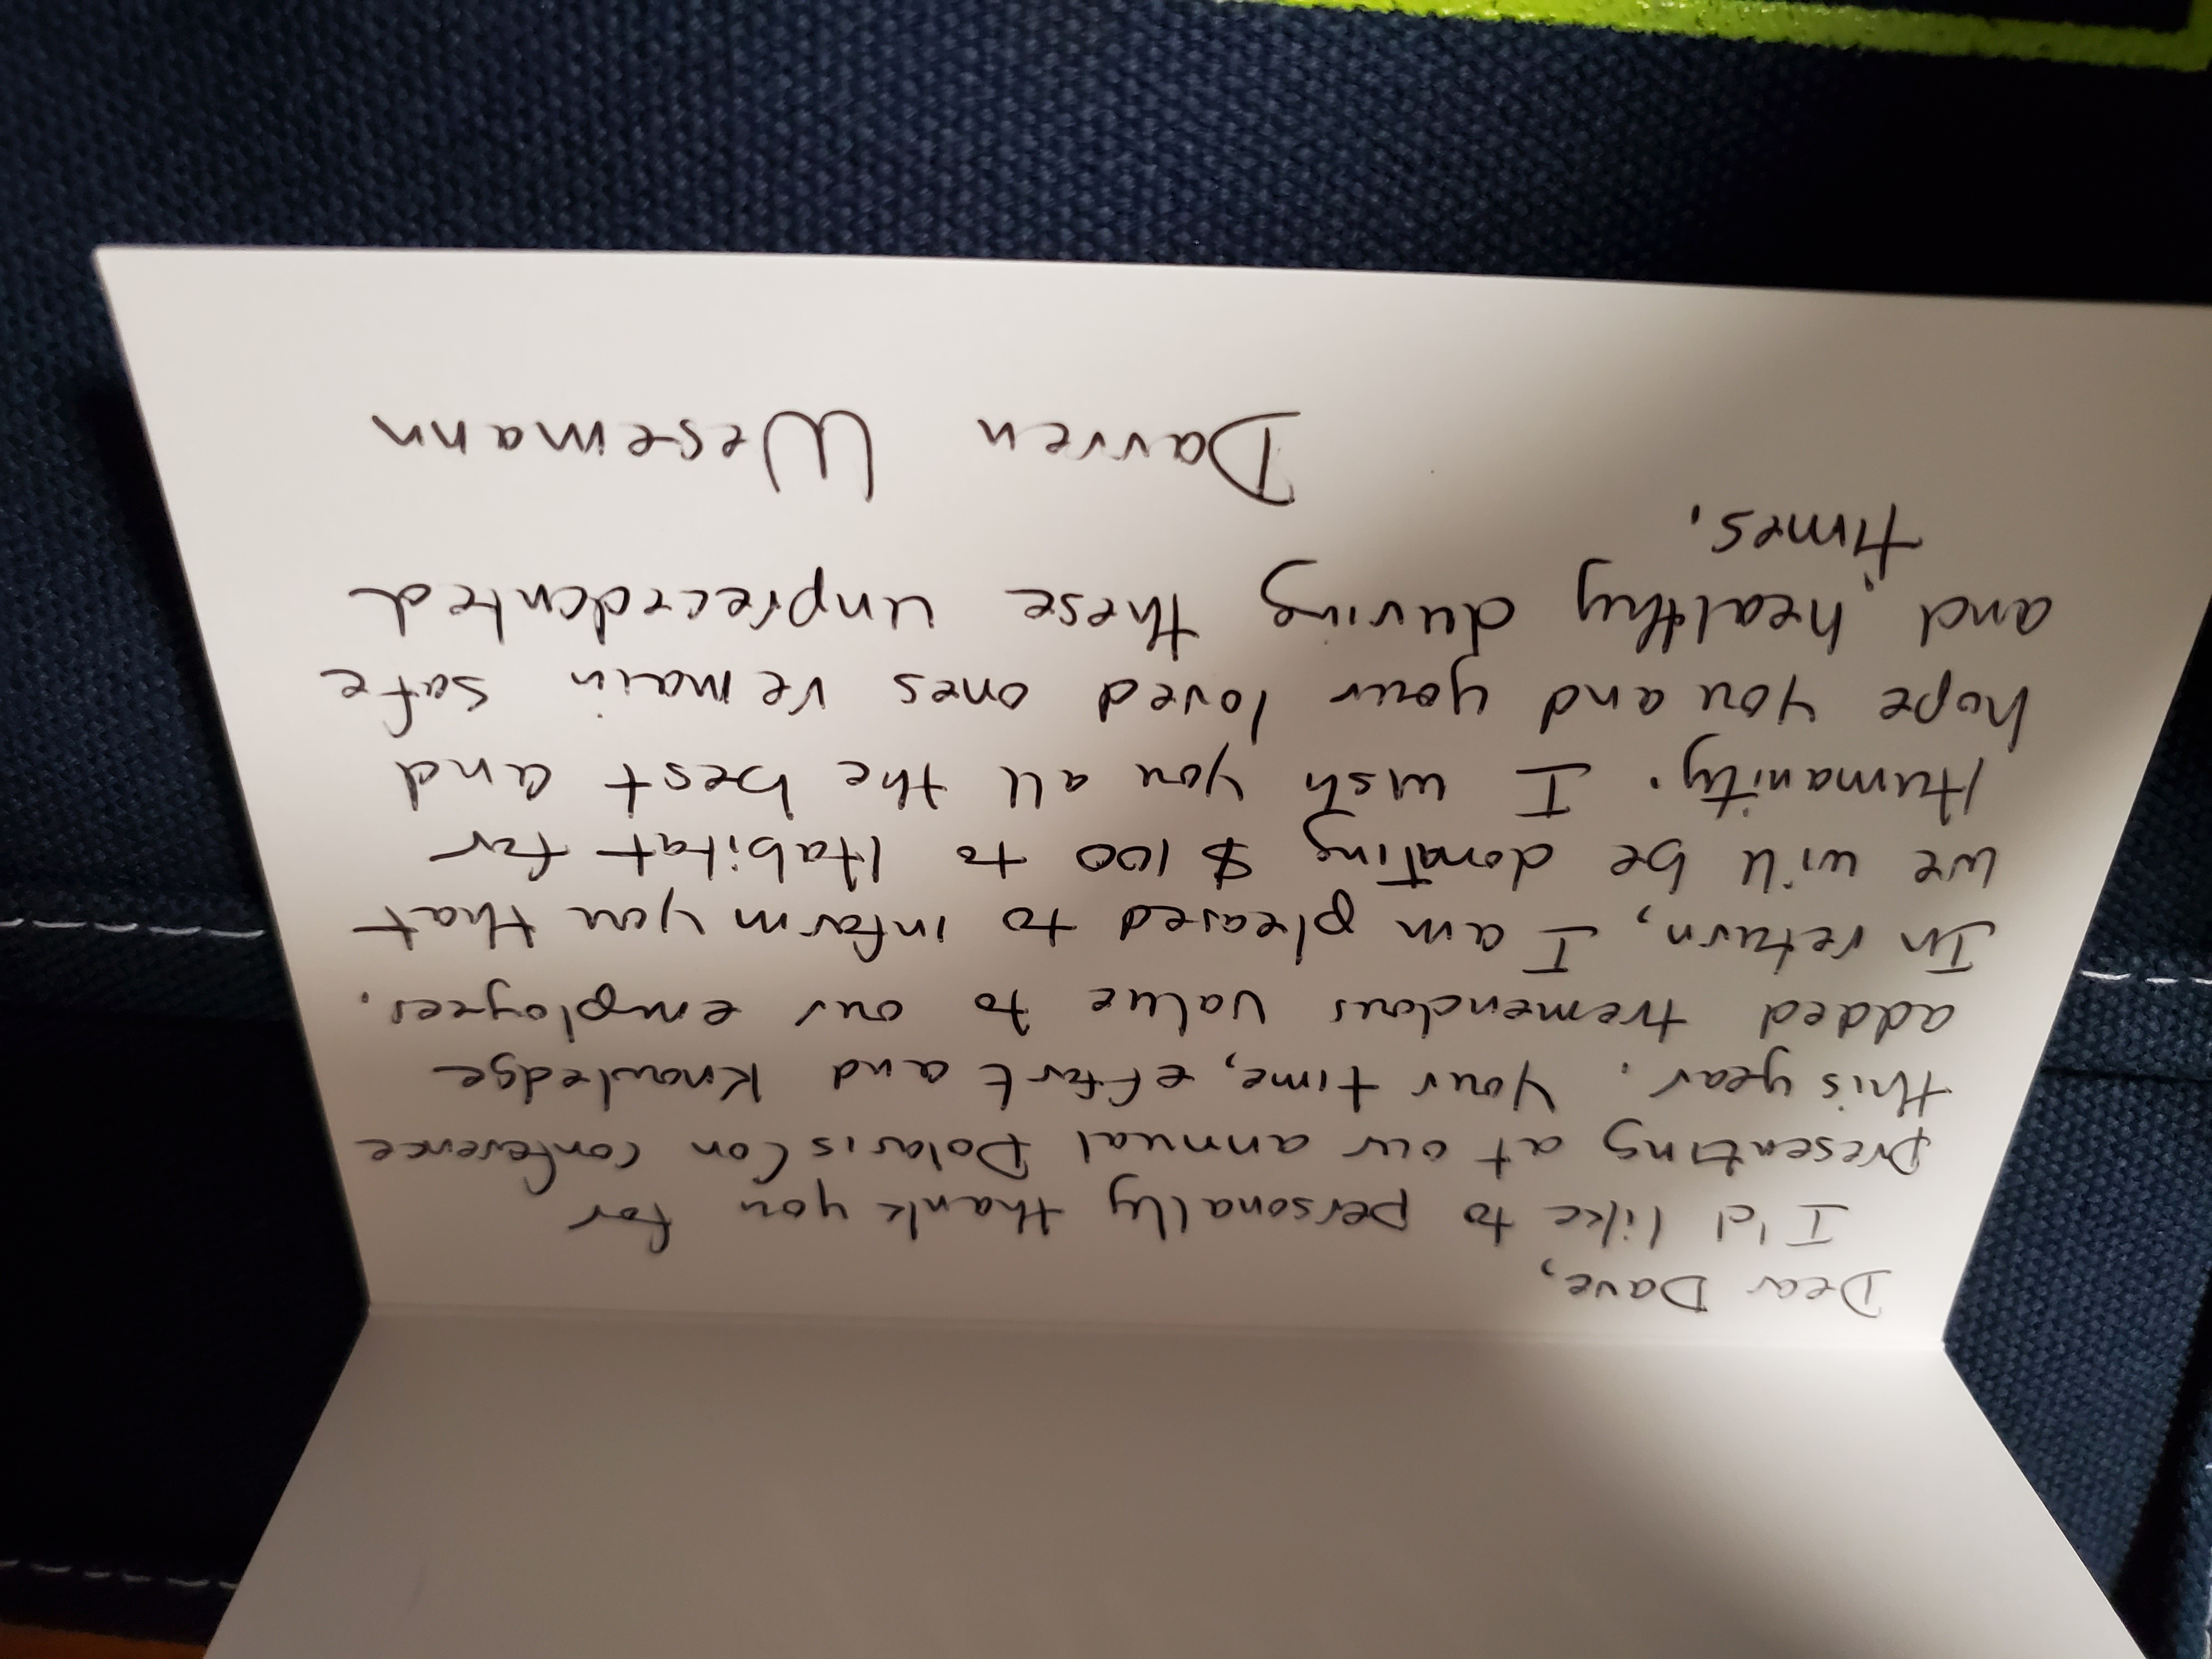 Dear Dave,
I'd like to personally thank you for
presenting at our annual PolarisCon conference
this year. Your time, effort and knowledge
added tremendous value to our employees.
In return, I am pleased to inform you that
we will be donating $100 to Habitat for
Humanity. I wish you all the best and
hope you and your loved ones remain safe
and healthy during these unprecedented
times.
Darren Wesemann